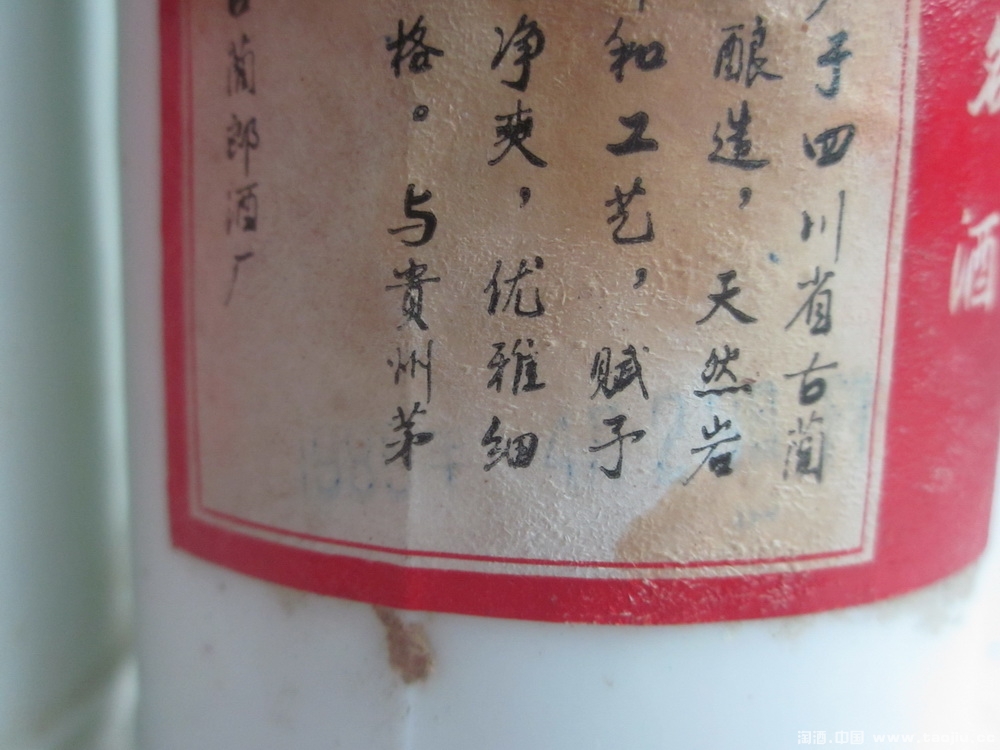 酒
于四川省古蔺
酿造，天然岩
和工艺，赋予
净爽，优雅细
格。与贵州茅
蔺郎酒厂
淘酒.中国